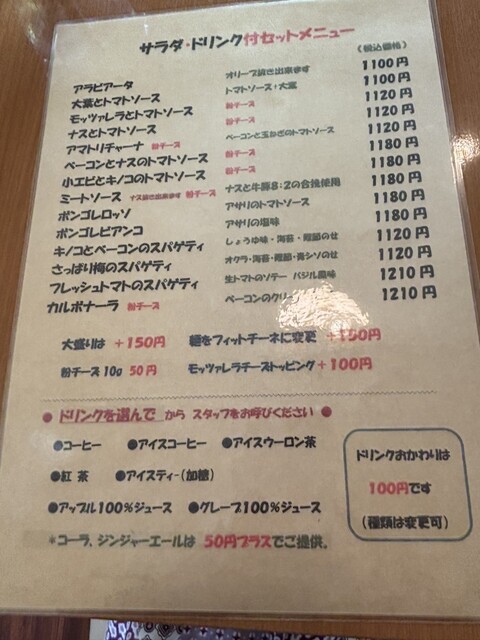 サラダ・ドリンク付セットメニュー
(税込価格)
アラビアータ オリーブ抜き出来ます 1100円
大葉とトマトソース トマトソース+大葉 1100円
モッツァレラとトマトソース 粉チーズ 1120円
ナスとトマトソース 粉チーズ 1120円
アマトリチャーナ 粉チーズ ベーコンと玉ねぎのトマトソース 1120円
ベーコンとナスのトマトソース 粉チーズ 1180円
小エビとキノコのトマトソース 粉チーズ 1180円
ミートソース ナス抜き出来ます 粉チーズ ナスと牛豚8:2の合挽使用 1180円
ボンゴレロッソ アサリのトマトソース 1180円
ボンゴレビアンコ アサリの塩味 1180円
キノコとベーコンのスパゲティ しょうゆ味・海苔・鰹節のせ 1120円
さっぱり梅のスパゲティ オクラ・海苔・鰹節・青シソのせ 1120円
フレッシュトマトのスパゲティ 生トマトのソテー バジル風味 1210円
カルボナーラ 粉チーズ ベーコンのクリー 1210円
大盛りは +150円 麺をフィットチーネに変更 +150円
粉チーズ 10g 50円 モッツァレラチーズトッピング+100円
●ドリンクを選んで から スタッフをお呼びください●
●コーヒー ●アイスコーヒー ●アイスウーロン茶
●紅茶 ●アイスティー(加糖)
●アップル100%ジュース ●グレープ100%ジュース
*コーラ、ジンジャーエールは 50円プラスでご提供。
ドリンクおかわりは
100円です
(種類は変更可)